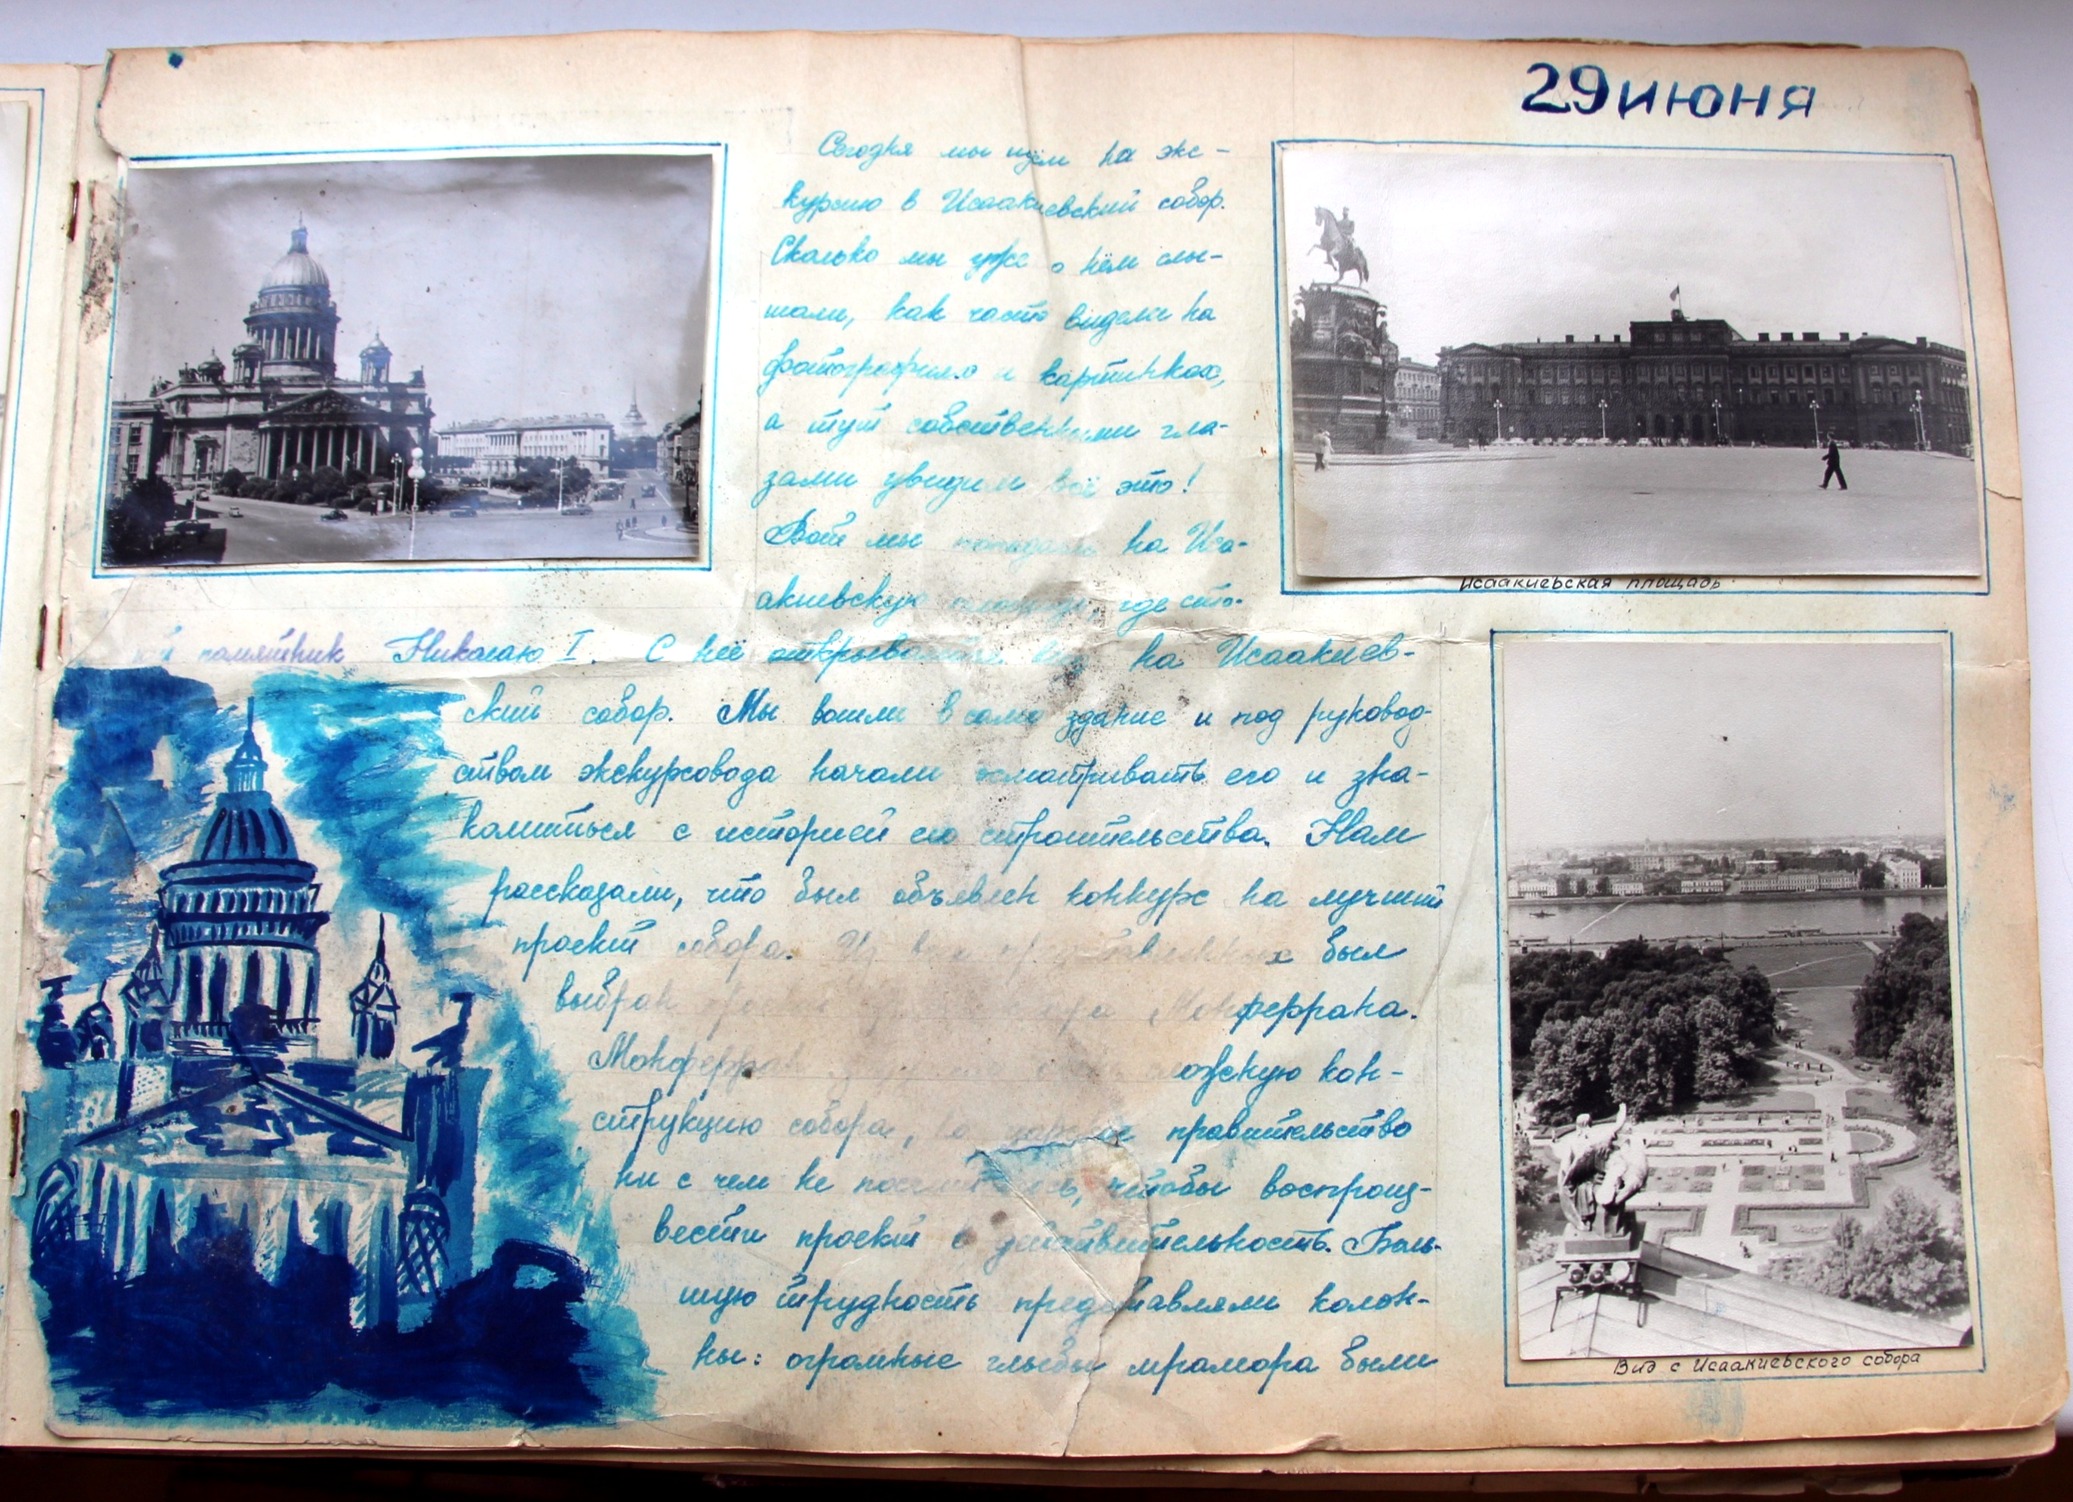 29 июня
Сегодня мы идём на экс-
курсию в Исаакиевский собор.
Сколько мы уже о нём слы-
шали, как часто видели на
фотографиях и картинках,
а тут собственными гла-
зами увидим всё это!
Вот мы попадаем на Иса-
акиевскую площадь, где сто-
ит памятник Николаю I. С неё открывается вид на Исаакиев-
ский собор. Мы вошли в само здание и под руковод-
ством экскурсовода начали осматривать его и зна-
комиться с историей его строительства. Нам
рассказали, что был объявлен конкурс на лучший
проект собора. Из всех представленных был
выбран Монферрана.
Монферран сложную кон-
струкцию собора, но царское правительство
ни с чем не посчиталось, чтобы воспроиз-
вести проект в действительность. Боль-
шую трудность представляли колон-
ны: огромные глыбы мрамора были
Исаакиевская площадь
Вид с Исаакиевского собора